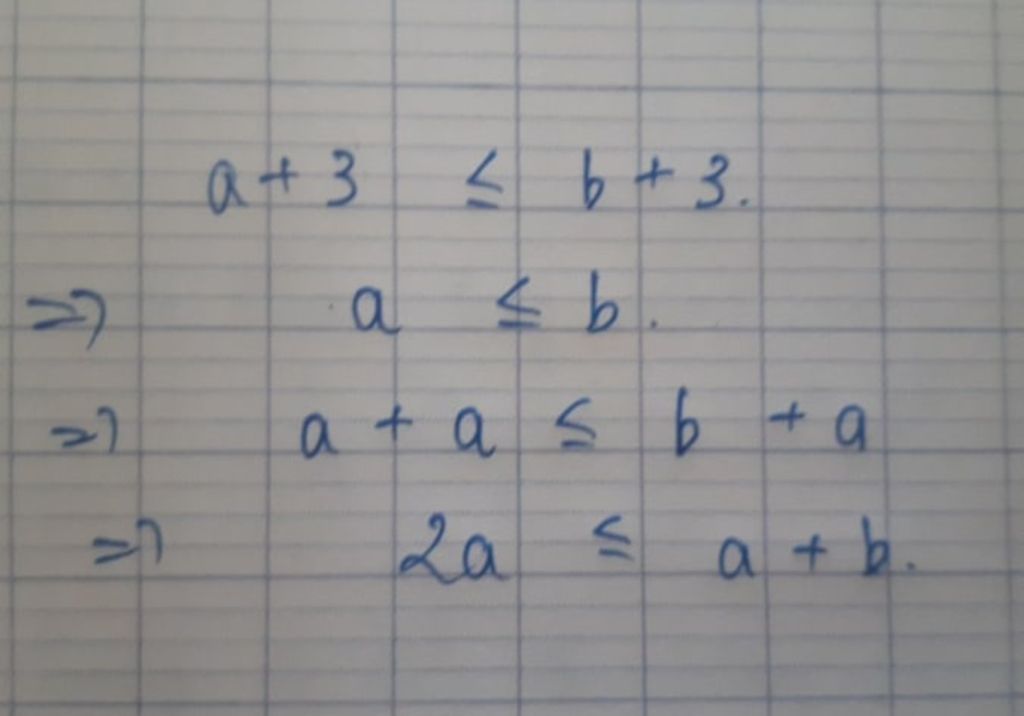 a + 3 ≤ b + 3.
=> a ≤ b.
=> a + a ≤ b + a
=> 2a ≤ a + b.